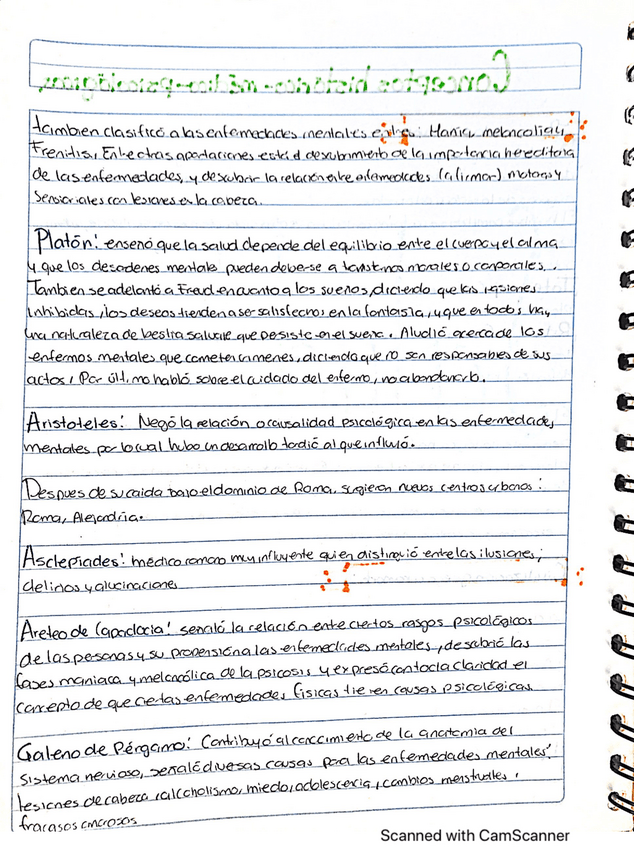 Conceptos histórico-médico-psicológicos
también clasificó a las enfermedades mentales en: Manía, melancolia y
Frenitis, Entre otras aportaciones está el descubrimiento de la importancia hereditaria
de las enfermedades, y descubrir la relación entre enfermedades (afirmar) motoras y
sensoriales con lesiones en la cabeza.
Platón: enseñó que la salud depende del equilibrio entre el cuerpo y el alma
y que los desordenes mentales pueden deberse a trastornos morales o corporales.
Tambien se adelantó a Freud en cuanto a los sueños, diciendo que las pasiones
inhibidas, los deseos tienden a ser satisfechos en la fantasía, y que en todos hay
una naturaleza de bestia salvaje que persiste en el sueño. Aludió acerca de los
enfermos mentales que cometen crimenes, diciendo que no son responsables de sus
actos, Por último habló sobre el cuidado del enfermo, no abandonarlo.
Aristoteles: Negó la relación o causalidad psicológica en las enfermedades
mentales por lo cual hubo un desarrollo tardío al que influyó.
Despues de su caida bajo el dominio de Roma, surgieron nuevos centros urbanos:
Roma, Alejandria.
Asclepiades: médico romano muy influyente quien distinguió entre las ilusiones,
delirios y alucinaciones
Areteo de Capadocia: señaló la relación entre ciertos rasgos psicológicos
de las personas y su propensión a las enfermedades mentales, describió las
fases maniaca y melancólica de la psicosis y expresó con toda claridad el
concepto de que ciertas enfermedades físicas tienen causas psicológicas.
Galeno de Pérgamo: Contribuyó al conocimiento de la anatomia del
sistema nervioso, señaló diversas causas para las enfermedades mentales:
lesiones de cabeza, alcoholismo, miedo, adolescencia, cambios menstruales,
fracasos amorosos
Scanned with CamScanner